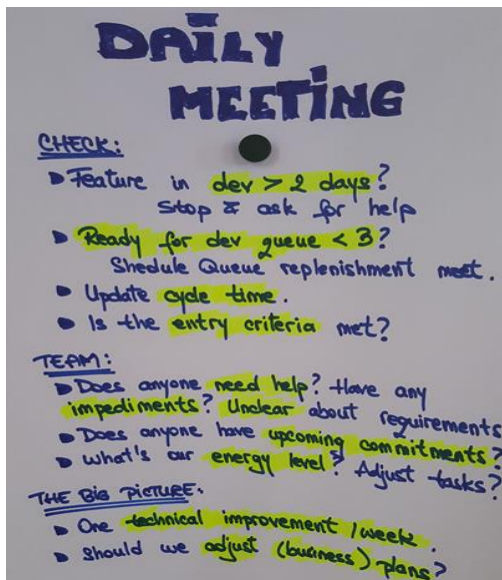 DAILY
MEETING
CHECK:
Feature in dev > 2 days?
Stop & ask for help
Ready for dev queue < 3?
Shedule Queue replenishment meet.
Update cycle time.
Is the entry criteria met?
TEAM:
Does anyone need help? Have any
impediments? Unclear about requirements
Does anyone have upcoming commitments?
What's our energy level? Adjust tasks?
THE BIG PICTURE:
One technical improvement /week.
Should we adjust (business) plans?